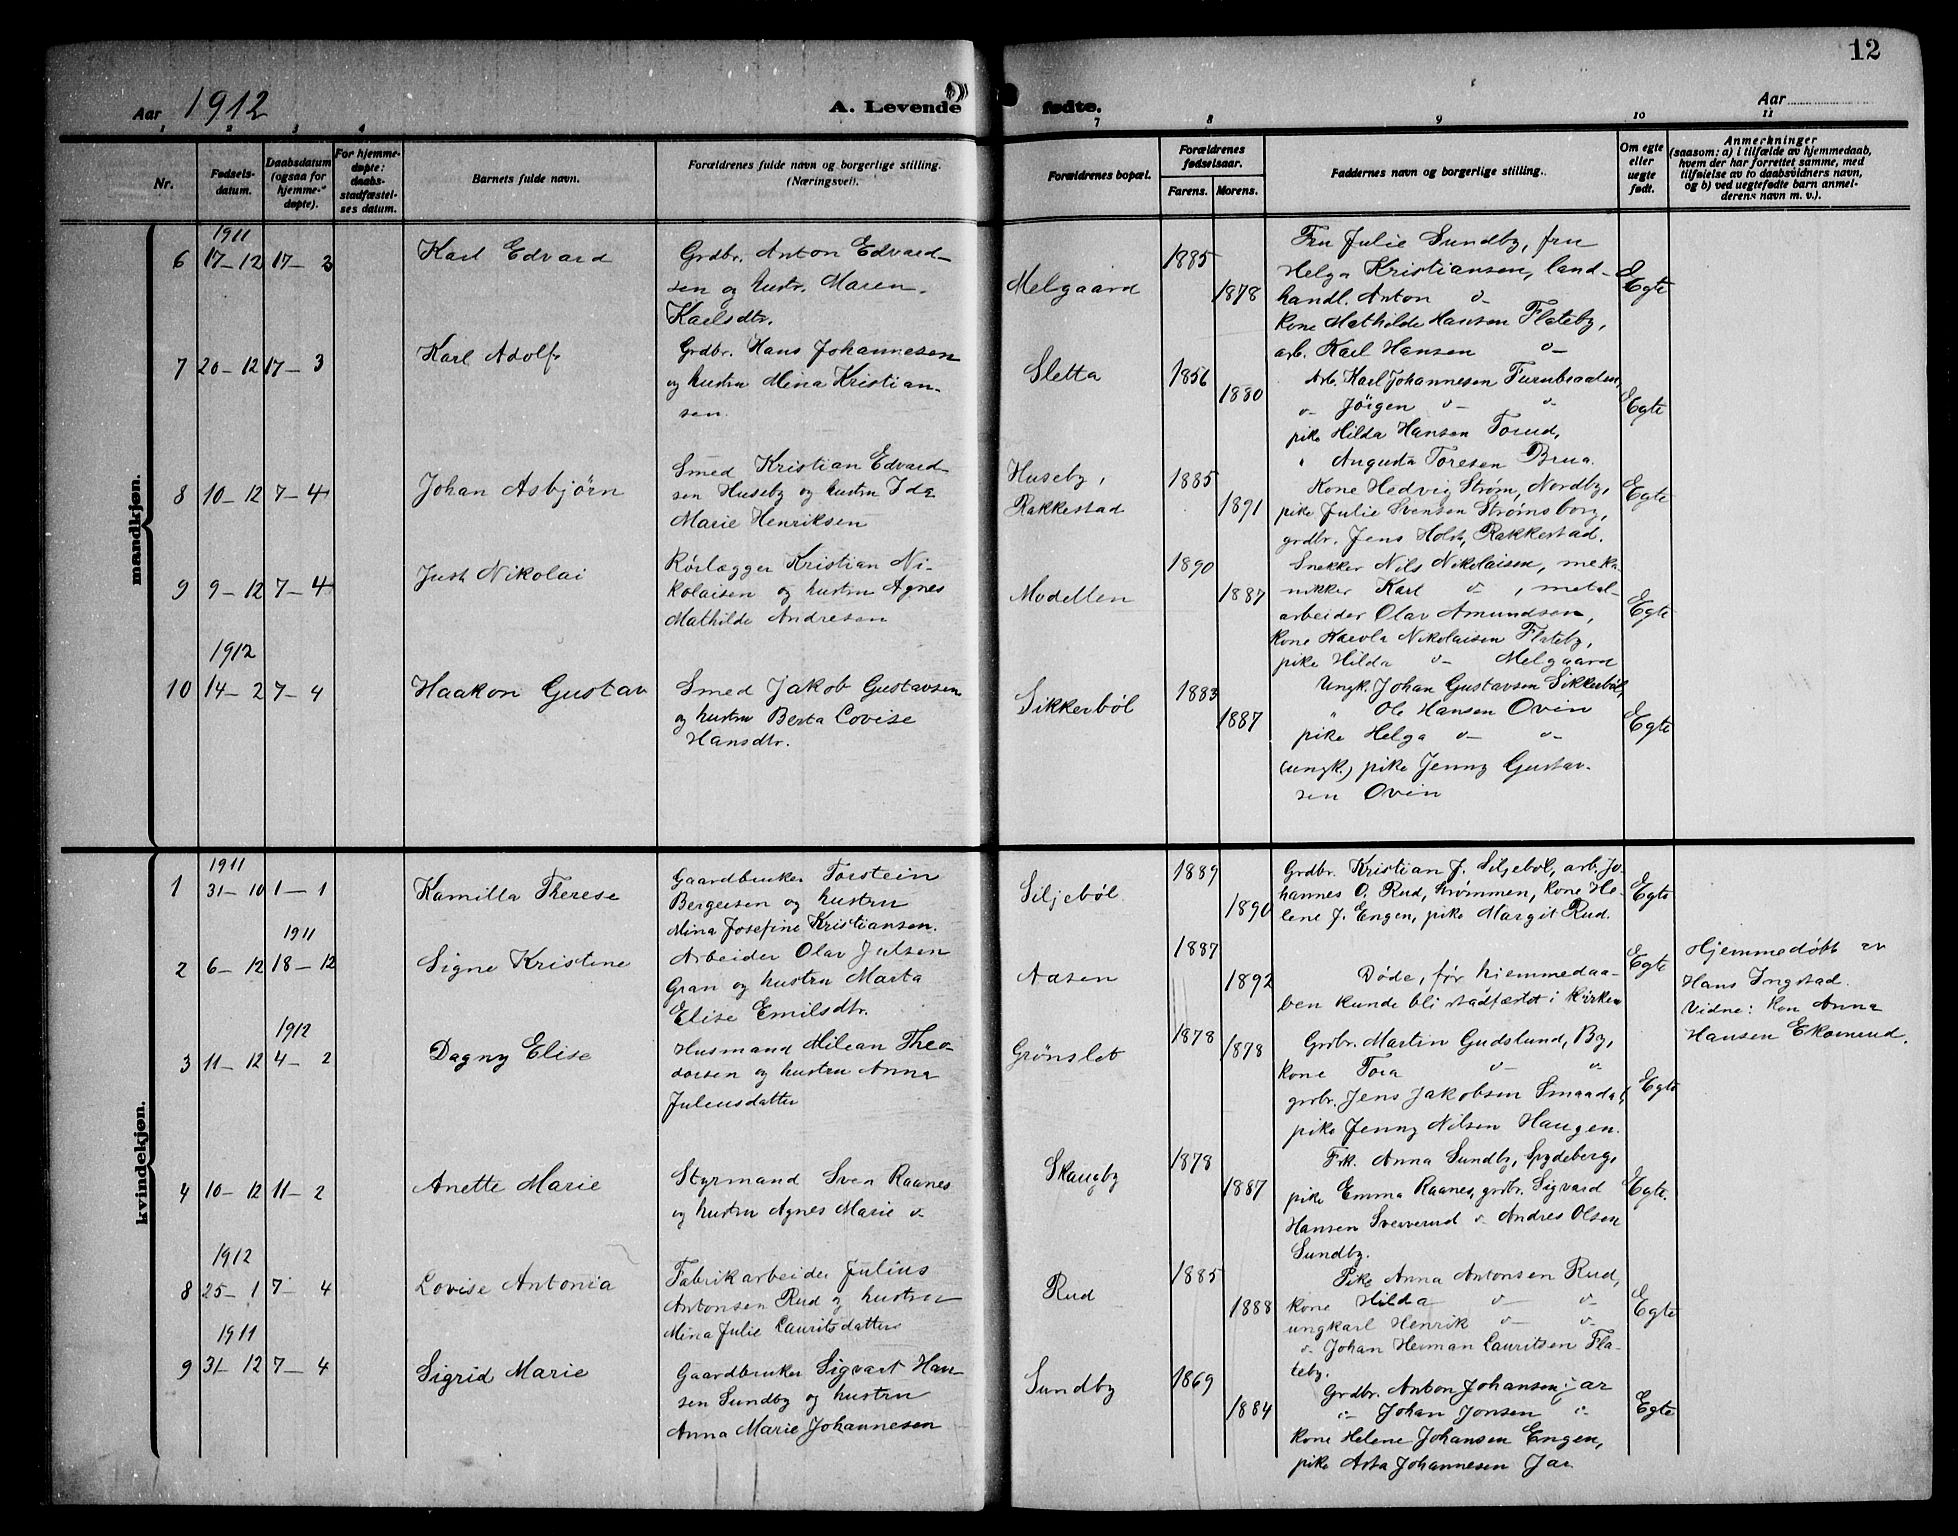 12
Aar 1912
A. Levende fødte.
Aar
1 2 3 4 7 8 9 10 11
Nr.
Fødsels-
datum.
Daabsdatum
(ogsaa for
hjemme-
døpte).
For hjemme-
døpte:
daabs-
stadfæstel-
ses datum.
Barnets fulde navn.
Forældrenes fulde navn og borgerlige stilling.
(Næringsvei).
Forældrenes bopæl.
Forældrenes
fødselsaar.
Farens. Morens.
Faddernes navn og borgerlige stilling.
Om egte
eller
uegte
født.
Anmerkninger
(saasom: a) i tilfælde av hjemmedaab,
hvem der har forrettet samme, med
tilføielse av to daabsvidners navn,
og b) ved uegtefødte barn anmel-
derens navn m. v.).
mandkjøn.
1911
6 17-12 17-3 Karl Edvard
Grdbr. Anton Edvard-
sen og hustr. Maren
Karlsdtr.
Melgaard 1885 1878
Fru Julie Sundby, fru
Helga Kristiansen, land-
handl. Anton v-
kone Mathilde Hansen Flateby,
arb. Karl Hansen v-
Egte
7 20-12 17-3 Karl Adolf
Grdbr. Hans Johannesen
og hustru Mina Kristian-
sen.
Sletta 1856 1880
Arb. Karl Johannesen
v- Jörgen v- v-
pike Hilda Hansen Torud,
" Augusta Toresen Brua.
Egte
8 10-12 7-4 Johan Asbjörn
Smed Kristian Edvard-
sen Huseby og hustru Ida
Marie Henriksen
Huseby,
Rakkestad
1885 1891
Kone Hedvig Strøm, Nordby,
pike Julie Svensen Strømsborg,
grdbr. Jens Holt, Rakkestad.
Egte
9 9-12 7-4 Just Nikolai
Rørlægger Kristian Ni-
kolaisen og hustru Agnes
Mathilde Andresen
Modellen 1890 1887
Snekker Nils Nikolaisen, meka-
nikker Karl v-, metal-
arbeider Olav Amundsen,
kone Nikolaisen Flateby,
pike Hilda v- Melgaard
Egte
1912
10 14-2 7-4 Haakon Gustav
Smed Jakob Gustavsen
og hustru Berta Lovise
Hansdtr.
Sikkerböl 1883 1887
Ungk. Johan Gustavsen Sikkerböl,
" Ole Hansen Ovin
pike Helga v- v-
(ungk.) pike Jenny Gustav-
sen Ovin
Egte
kvindekjøn.
1911
1 31-10 1-1 Kamilla Therese
Gaardbruker Torstein
Bergersen og hustru
Mina Josefine Kristiansen.
Siljeböl 1889 1890
Grdbr. Kristian J. Siljeböl, arb. Jo-
hannes O. Rud, Strømmen, kone He-
lene J. Engen, pike Margit Rud.
Egte
1911
2 6-12 18-12 Signe Kristine
Arbeider Olav Julsen
Gran og hustru Marta
Elise Emilsdtr.
Aasen 1887 1892
Døde, før hjemmedaa-
ben kunde bli stadfæstet i kirken
Egte
Hjemmedöbt av
Hans Ingstad.
Vidne: kon Anna
Hansen Ekornrud.
1912
3 11-12 4-2 Dagny Elise
Husmand Milean Theo-
dorsen og hustru Anna
Juliusdatter
Grønslet 1878 1878
Grdbr. Martin Gudslund, By,
kone Tora v- v-
grdbr. Jens Jakobsen Smaadal,
pike Jenny Nilsen Haugen.
Egte
4 10-12 11-2 Anette Marie
Styrmand Sven Raanes
og hustru Agnes Marie v-
Skaugby 1878 1887
Frk. Anna Sundby, Spydeberg,
pike Emma Raanes, grdbr. Sigvard
Hansen Sververud v- Andres Olsen
Sundby.
Egte.
1912
8 25-1 7-4 Lovise Antonia
Fabrikarbeider Julius
Antonsen Rud og hustru
Mina Julie Lauritsdatter
Rud 1885 1888
Pike Anna Antonsen Rud,
kone Hilda v- v-
ungkarl Henrik v- v-
v- Johan Herman Lauritsen Fla-
teby.
Egte
1911
9 31-12 7-4 Sigrid Marie
Gaardbruker Sigvart Han-
sen Sundby og hustru
Anna Marie Johannesen
Sundby 1869 1884
Grdbr. Anton Johansen Jar
v- Johan Jonsen v-
kone Helene Johansen Engen,
pike Asta Johannesen Jar
Egte